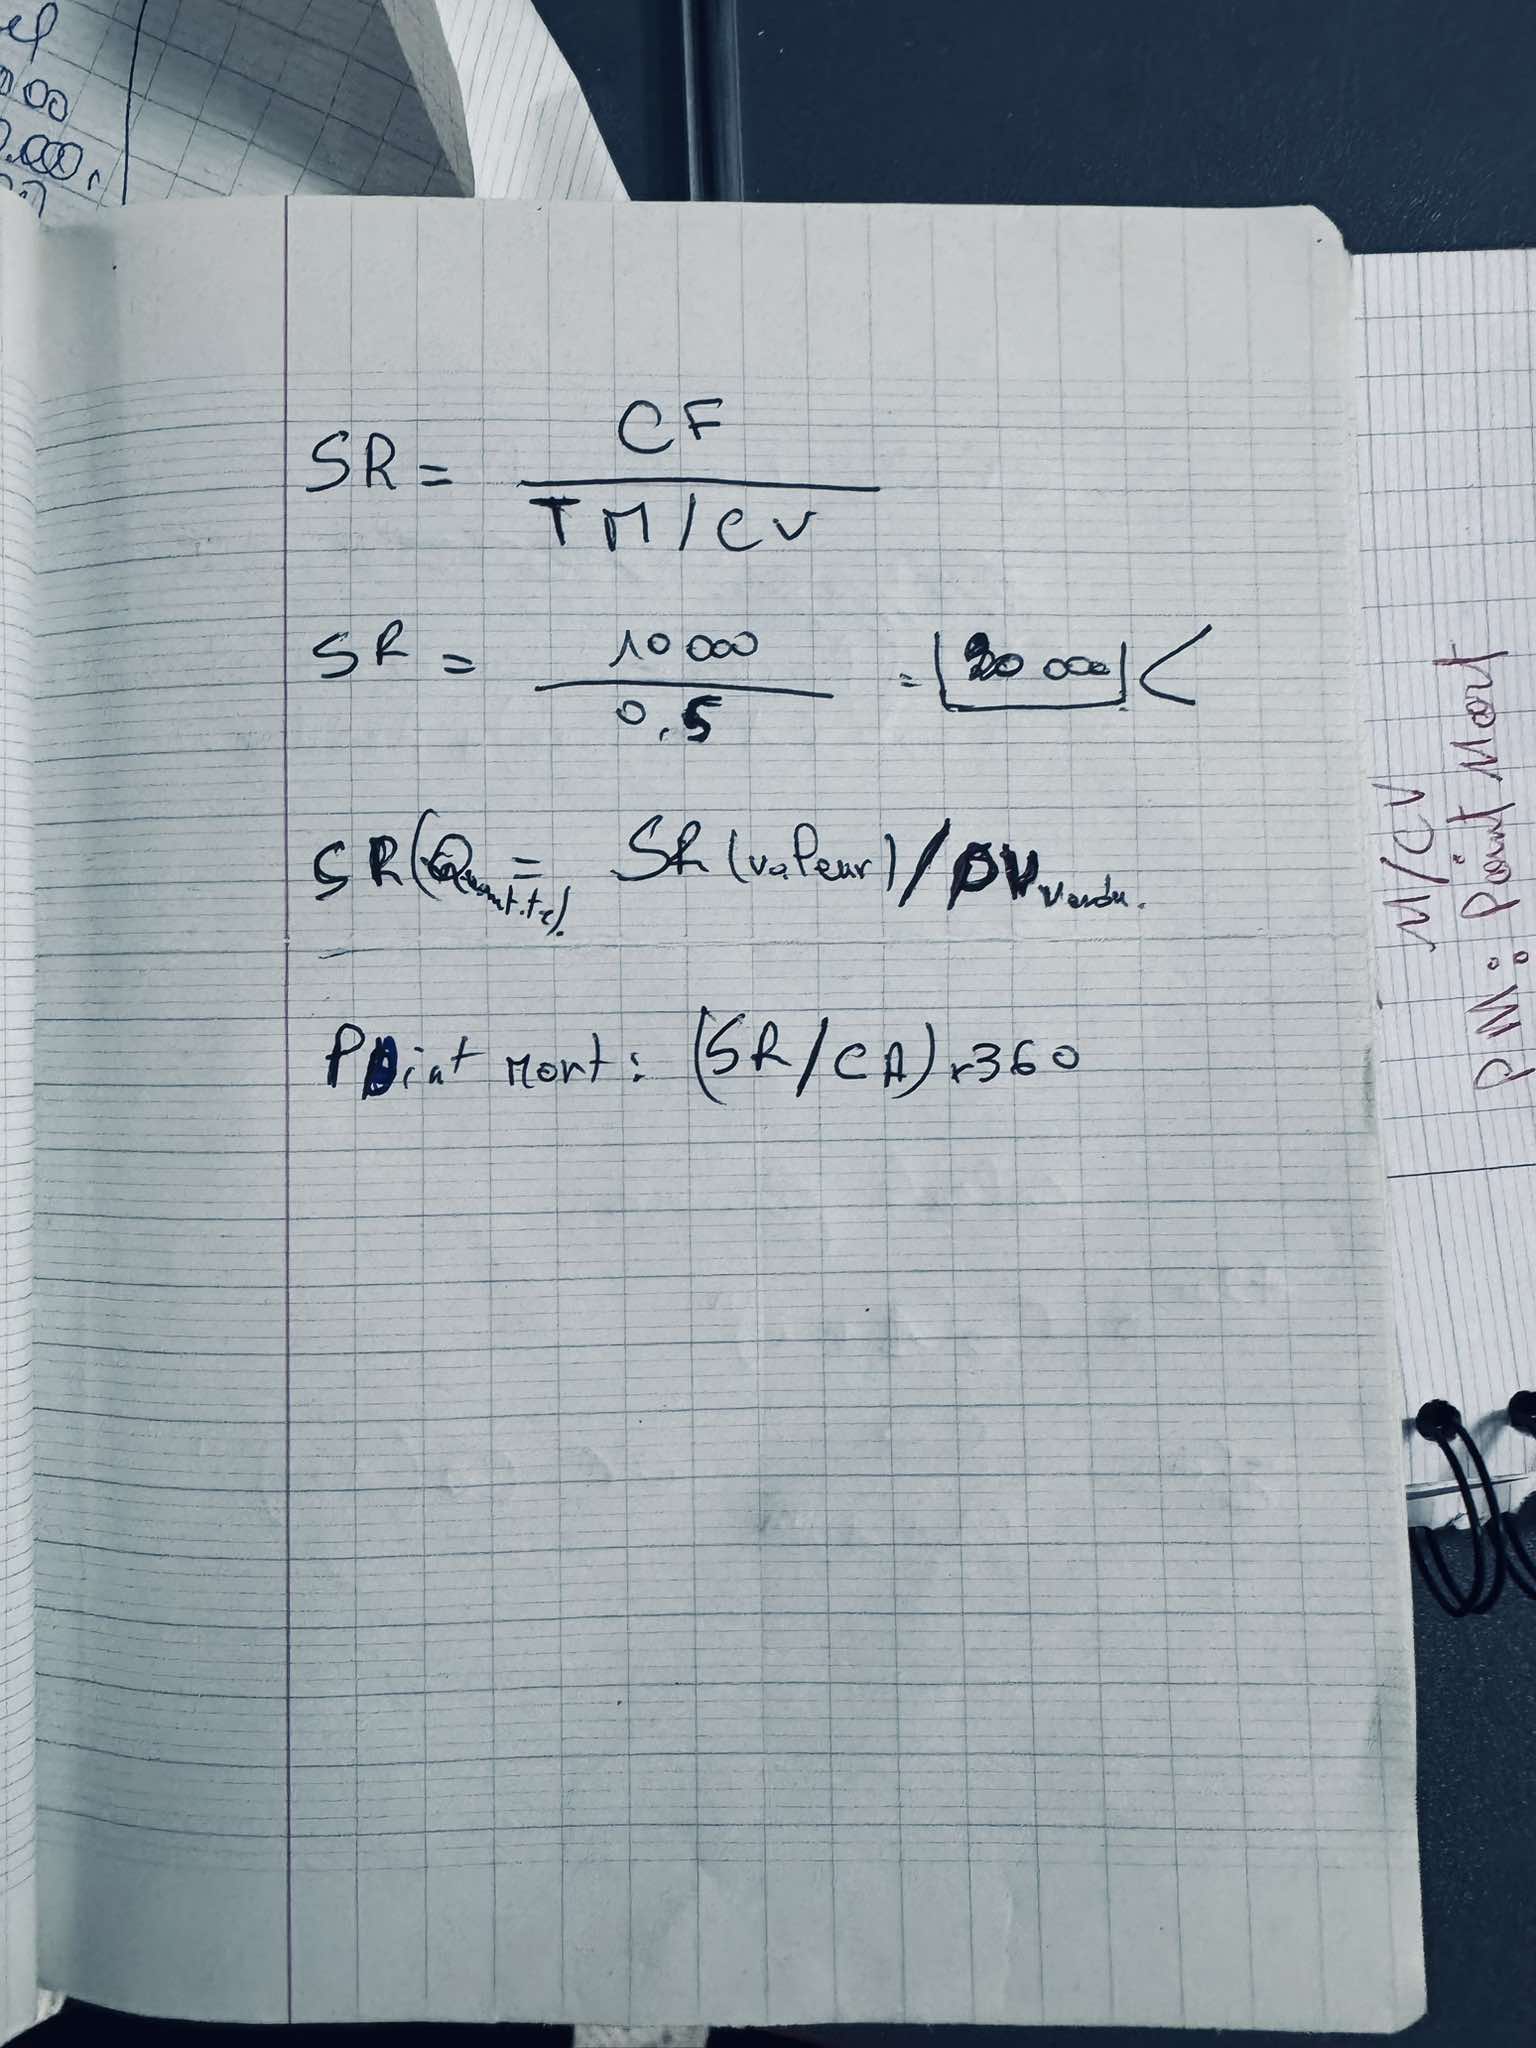 00
.000,
SR = CF
TM/CV
SR = 10 000 = 20 000 <
0,5
SR (Quantité) = SR (valeur) / PV vendu.
Point mort : (SR/CA) x 360
M/CV
PM : Point Mort